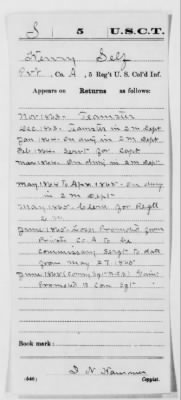 S 5 U.S.C.T.
Henry Self
Pvt, Co. A, 5 Reg't U. S. Col'd Inf.
Appears on Returns as follows:
Nov 1863. Teamster
Dec 1863. Teamster in 2 m Dept
Jan 1864. On duty in 2 m Dept
Feb 1864. Servt for Capt
Mar 1864. On duty in 2 m Dept
May 1864 to Apr 1865. On duty
in 2 m Dept
May 1865. Clerk for Regtl
2 m
June 1865. Loss. Promoted from
Private Co A to be
Commissary Sergt to date
from May 27 1865
June 1865 (Comy Sgt F&S) Gain
Promoted to Com Sgt
Book mark:
(546) Copyist.